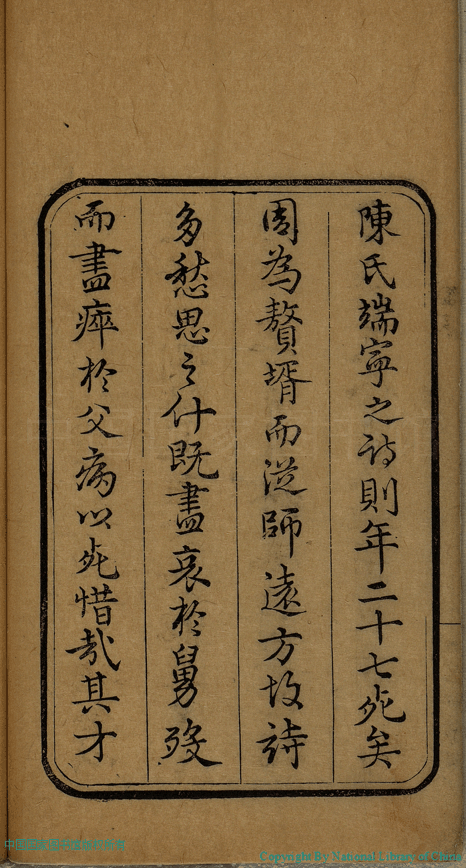 陳氏端寧之詩則年二十七死矣
周為贅壻而從師遠方故詩
多愁思之什既盡哀於舅歿
而盡瘁於父病以死惜哉其才
Copyright By National Library of China